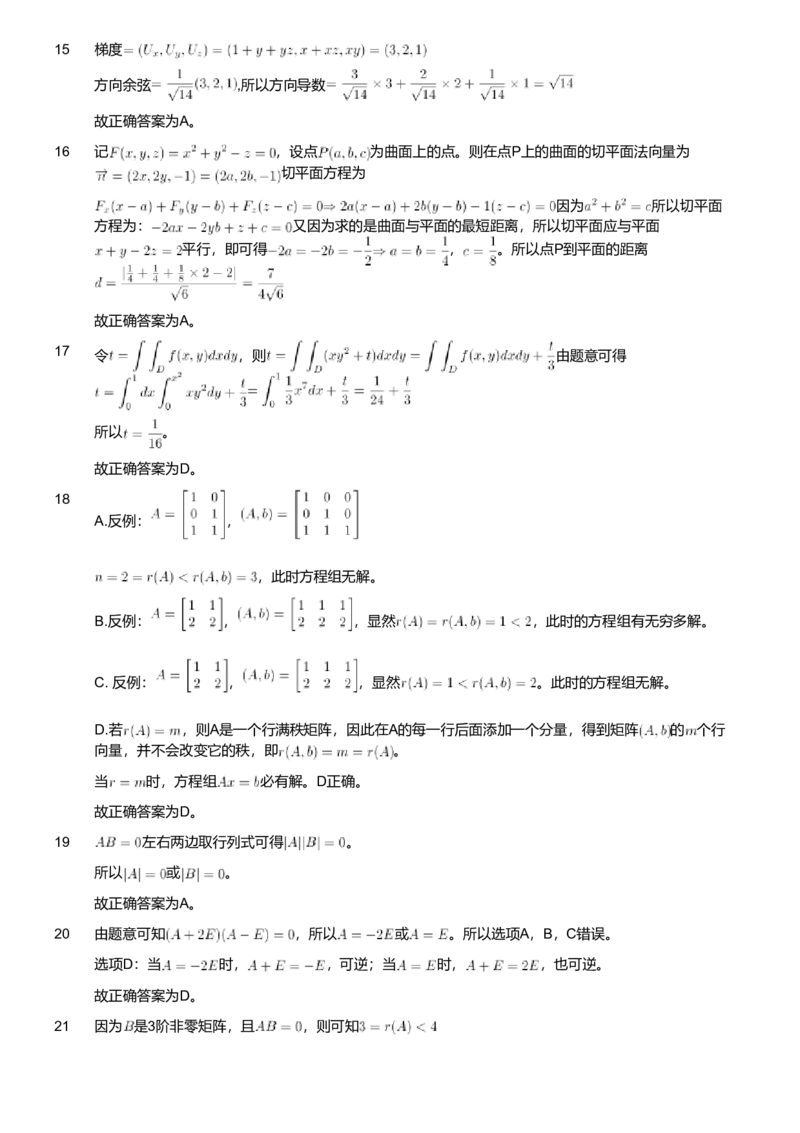 15 梯度= (Uₓ, U_y, U_z) = (1 + y + yz, x + xz, xy) = (3, 2, 1)
方向余弦= 1/√14 (3, 2, 1),所以方向导数= 3/√14 × 3 + 2/√14 × 2 + 1/√14 × 1 = √14
故正确答案为A。
16 记F(x, y, z) = x² + y² − z = 0，设点P(a, b, c)为曲面上的点。则在点P上的曲面的切平面法向量为
n⃗ = (2x, 2y, −1) = (2a, 2b, −1)切平面方程为
Fₓ(x − a) + F_y(y − b) + F_z(z − c) = 0 ⇒ 2a(x − a) + 2b(y − b) − 1(z − c) = 0因为a² + b² = c所以切平面
方程为：−2ax − 2yb + z + c = 0又因为求的是曲面与平面的最短距离，所以切平面应与平面
x + y − 2z = 2平行，即可得−2a = −2b = −1/2 ⇒ a = b = 1/4，c = 1/8。所以点P到平面的距离
d = |1/4 + 1/4 + 1/8 × 2 − 2|/√6 = 7/4√6
故正确答案为A。
17 令t = ∫∫_D f(x, y)dxdy，则t = ∫∫_D (xy² + t)dxdy = ∫∫_D f(x, y)dxdy + t/3 由题意可得
t = ∫₀¹ dx ∫₀^{x²} xy²dy + t/3 = ∫₀¹ 1/3 x⁷dx + t/3 = 1/24 + t/3
所以t = 1/16。
故正确答案为D。
18
A.反例：A = [1 0; 0 1; 1 1]，(A, b) = [1 0 0; 0 1 0; 1 1 1]
n = 2 = r(A) < r(A, b) = 3，此时方程组无解。
B.反例：A = [1 1; 2 2]，(A, b) = [1 1 1; 2 2 2]，显然r(A) = r(A, b) = 1 < 2，此时的方程组有无穷多解。
C. 反例：A = [1 1; 2 2]，(A, b) = [1 1 1; 2 2 2]，显然r(A) = 1 < r(A, b) = 2。此时的方程组无解。
D.若r(A) = m，则A是一个行满秩矩阵，因此在A的每一行后面添加一个分量，得到矩阵(A, b)的m个行
向量，并不会改变它的秩，即r(A, b) = m = r(A)。
当r = m时，方程组Ax = b必有解。D正确。
故正确答案为D。
19 AB = 0左右两边取行列式可得|A||B| = 0。
所以|A| = 0或|B| = 0。
故正确答案为A。
20 由题意可知(A + 2E)(A − E) = 0，所以A = −2E或A = E。所以选项A，B，C错误。
选项D：当A = −2E时，A + E = −E，可逆；当A = E时，A + E = 2E，也可逆。
故正确答案为D。
21 因为B是3阶非零矩阵，且AB = 0，则可知3 = r(A) < 4